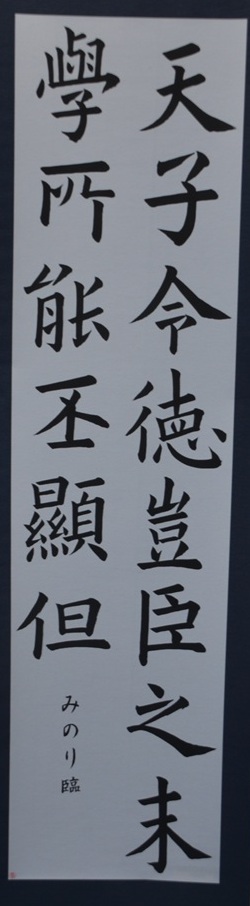 天子令徳豈臣之末
學所能丕顯但
みのり臨